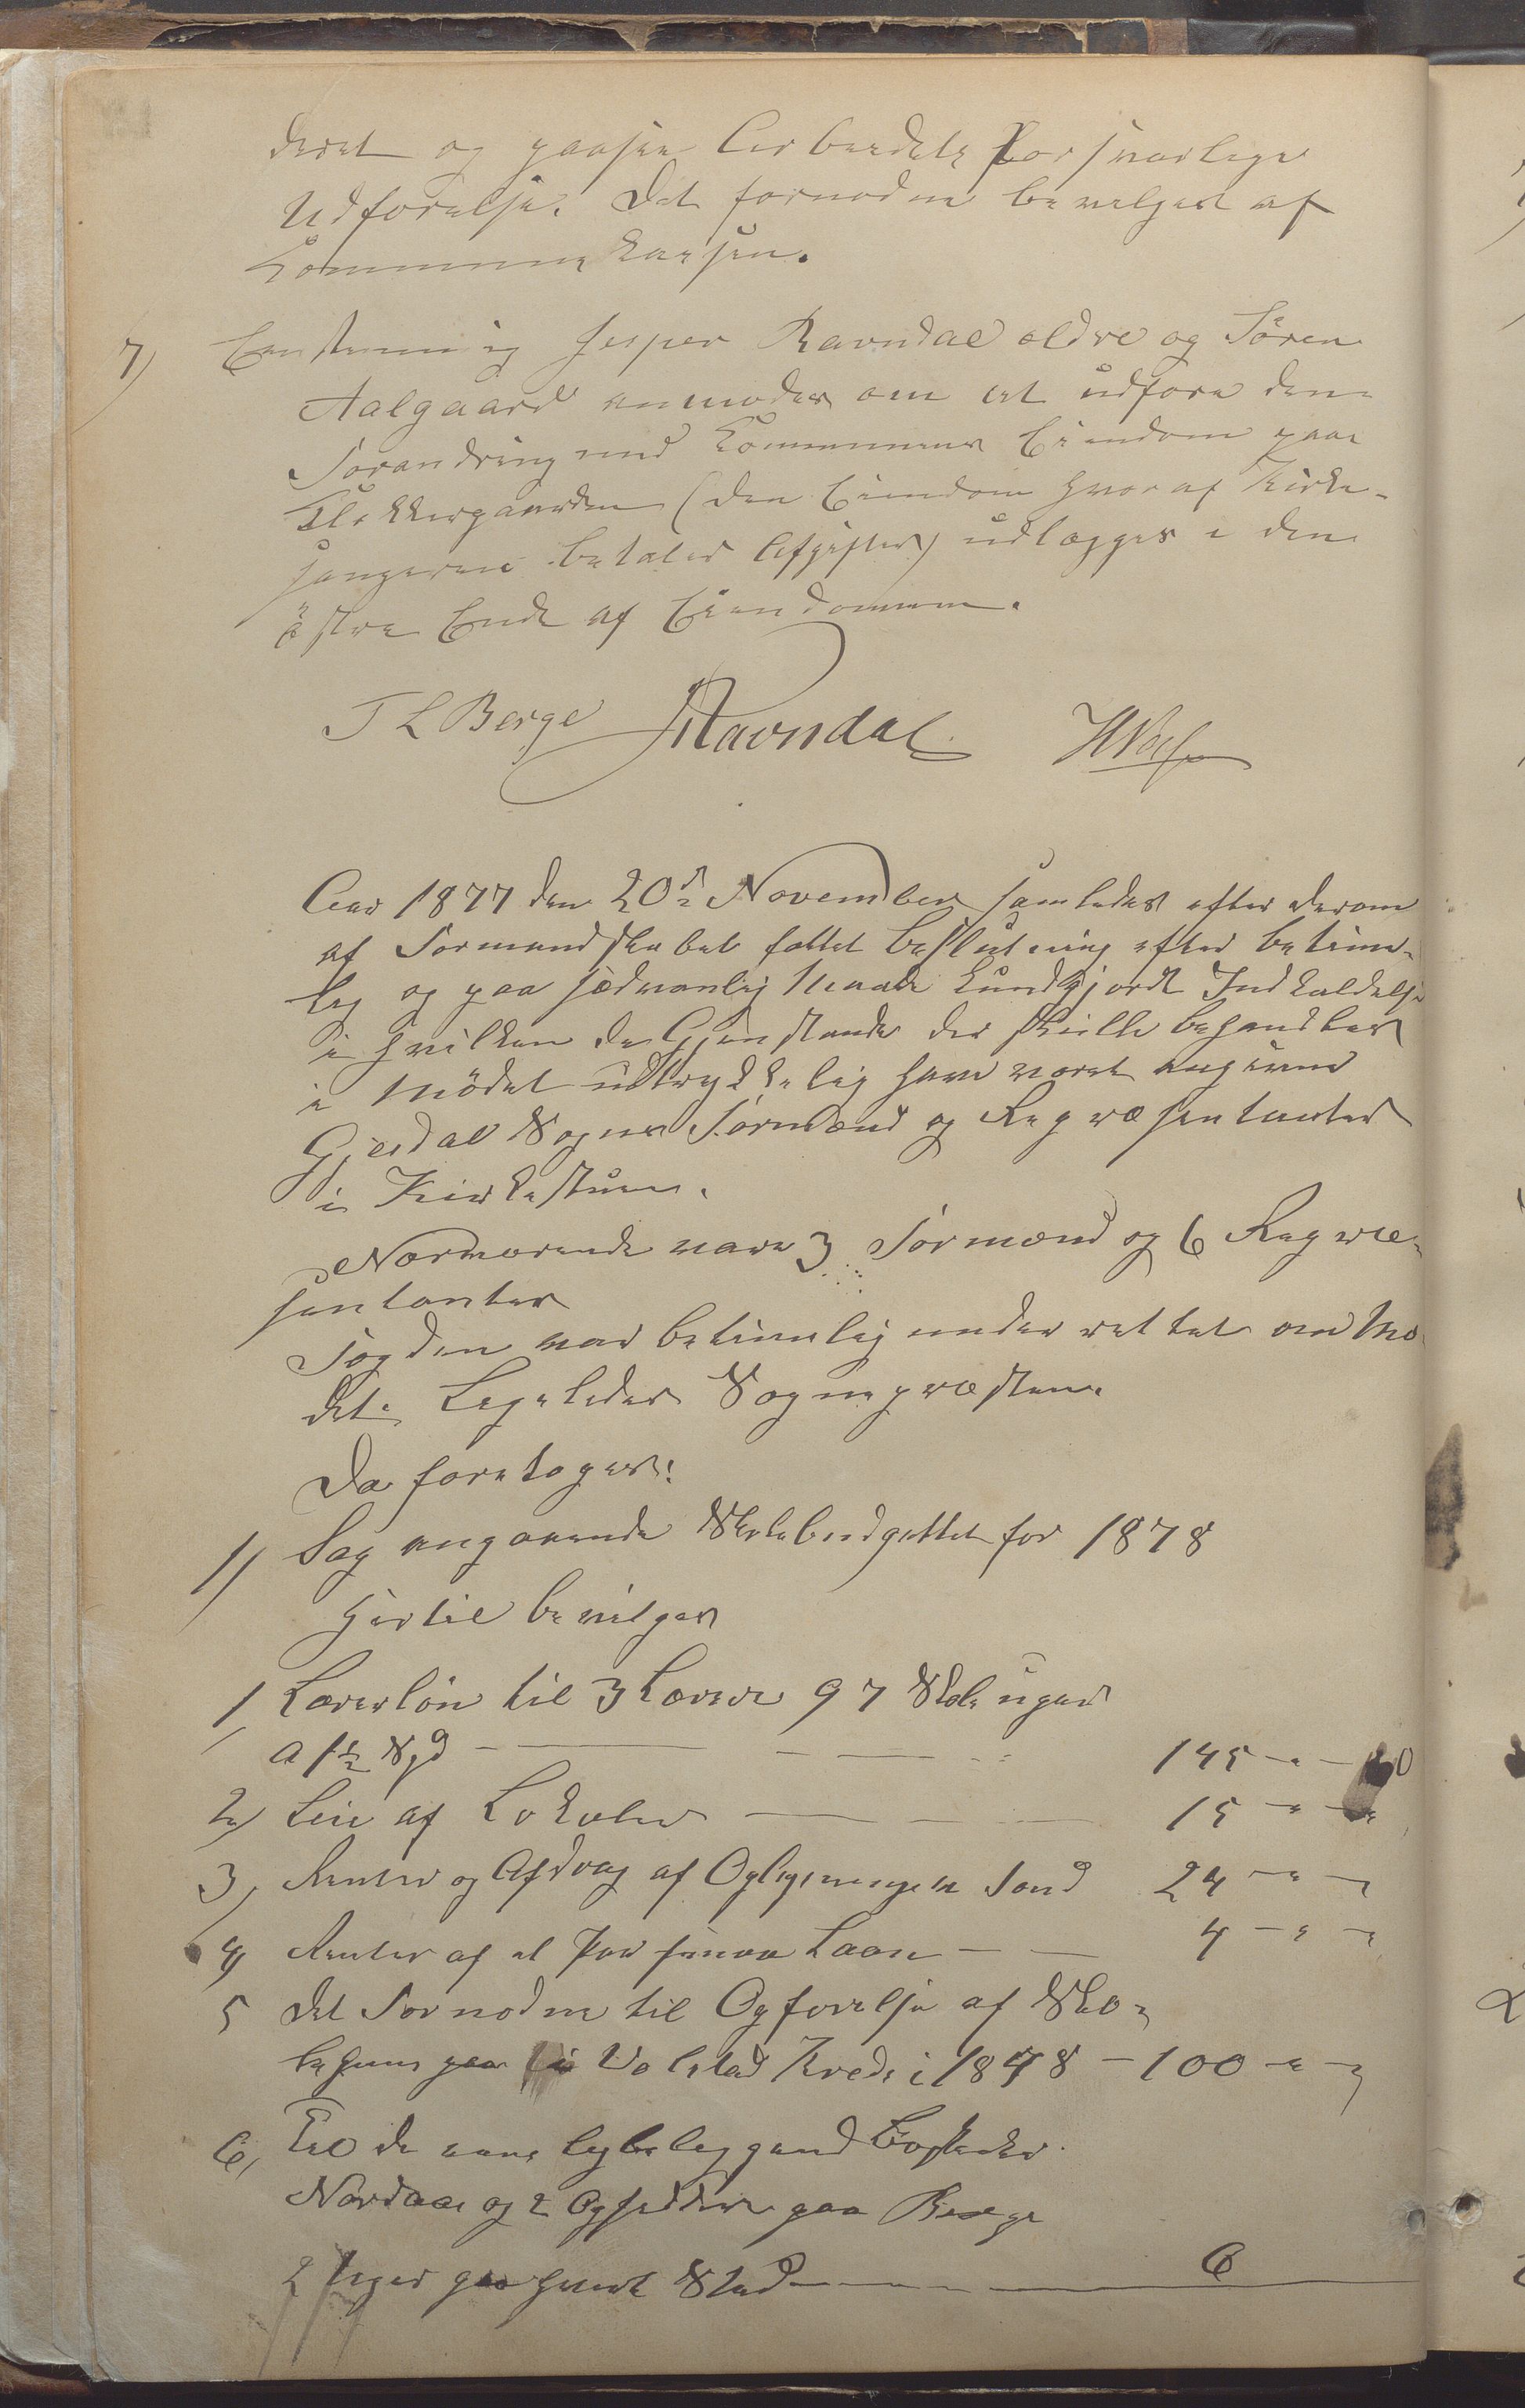 deret og paase Arbeidets forsvarlige
Udførelse. Det fornødne bevelges af
Kommunekassen.
7) Enstemmig Jesper Ravndal ældre og Søren
Aalgaard anmodes om at udføre den
Forandring med Kommunens Eiendom paa
Klokkergaarden (den Eiendom hvoraf Kirke-
sangeren betaler Afgifter) udlægges i den
østre Ende af Eiendommen.
T L Berge Ravndal
Aar 1877 den 20de November samledes efter derom
af Formandskabet fattet Beslutning efter betime-
lig og paa sædvanlig Maade kundgjordt Indkaldelse
i hvilken de Gjenstande der skulle behandles
i Mødet udtrykkelig have været angivne
Gjesdal Sogns Formænd og Repræsentanter
i Kirkestuen.
Nærværende vare 3 Formænd og 6 Repræ-
sentanter
Fogden var betimelig underrettet om Mø-
det. Ligeledes Sognepræsten.
Da foretoges:
1) Sag angaaende Skolebudgettet for 1878
Hertil bevilges
1, Lærerløn til 3 Lærere 97 Skoleuger
a 1½ Spd 145 - " - 60
2, Leie af Lokaler 15 - " - "
3, Renter og Afdrag af Oplysningens Fond 24 - " - "
4, Renter af et Laan - - 4 - " - "
5 Det Fornødne til Opførelse af Sko-
lehuus paa Volstad Kreds i 1878 - 100 - " - "
6, Til de
Nordaas og 2 Opsiddere paa Berge
2 Uger paa hvert Sted 6